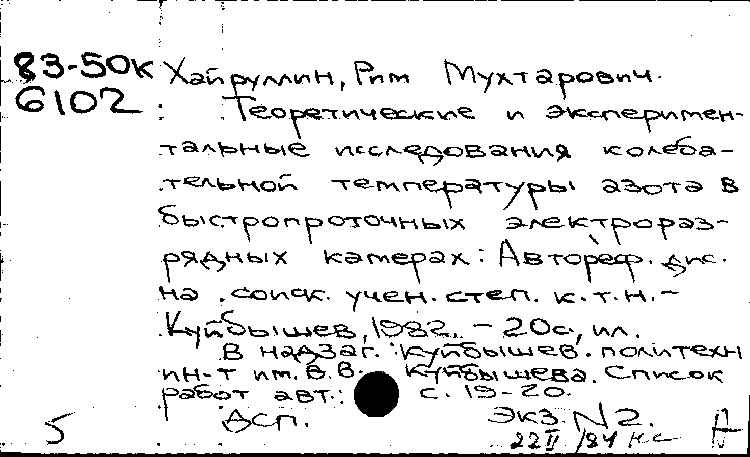 83-50к Хайруллин, Рим Мухтарович.
6102 Теоретические и эксперимен-
тальные исследования колеба-
тельной температуры азота в
быстропроточных электрораз-
рядных камерах: Автореф. дис.
на соиск. учен. степ. к.т.н.-
Куйбышев, 1982. - 20с, ил.
В надзаг. Куйбышев. политехн
ин-т им. В.В. Куйбышева. Список
работ авт.: с. 19-20.
5 ДСП. Экз. N2. А
22 II /84